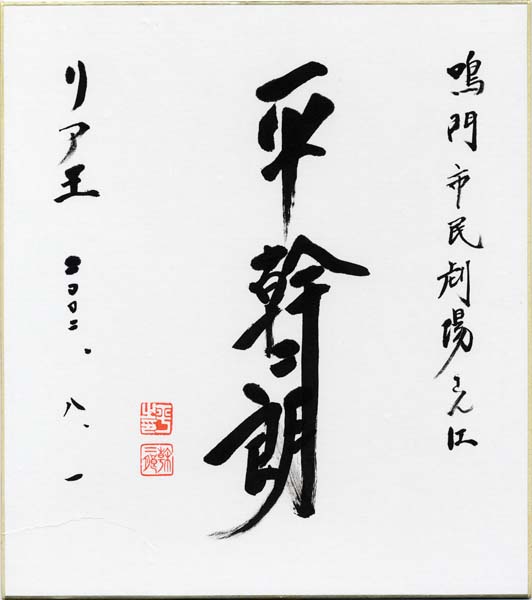 鳴門市民劇場さん江
平幹二朗
リア王 二〇〇二、八、一